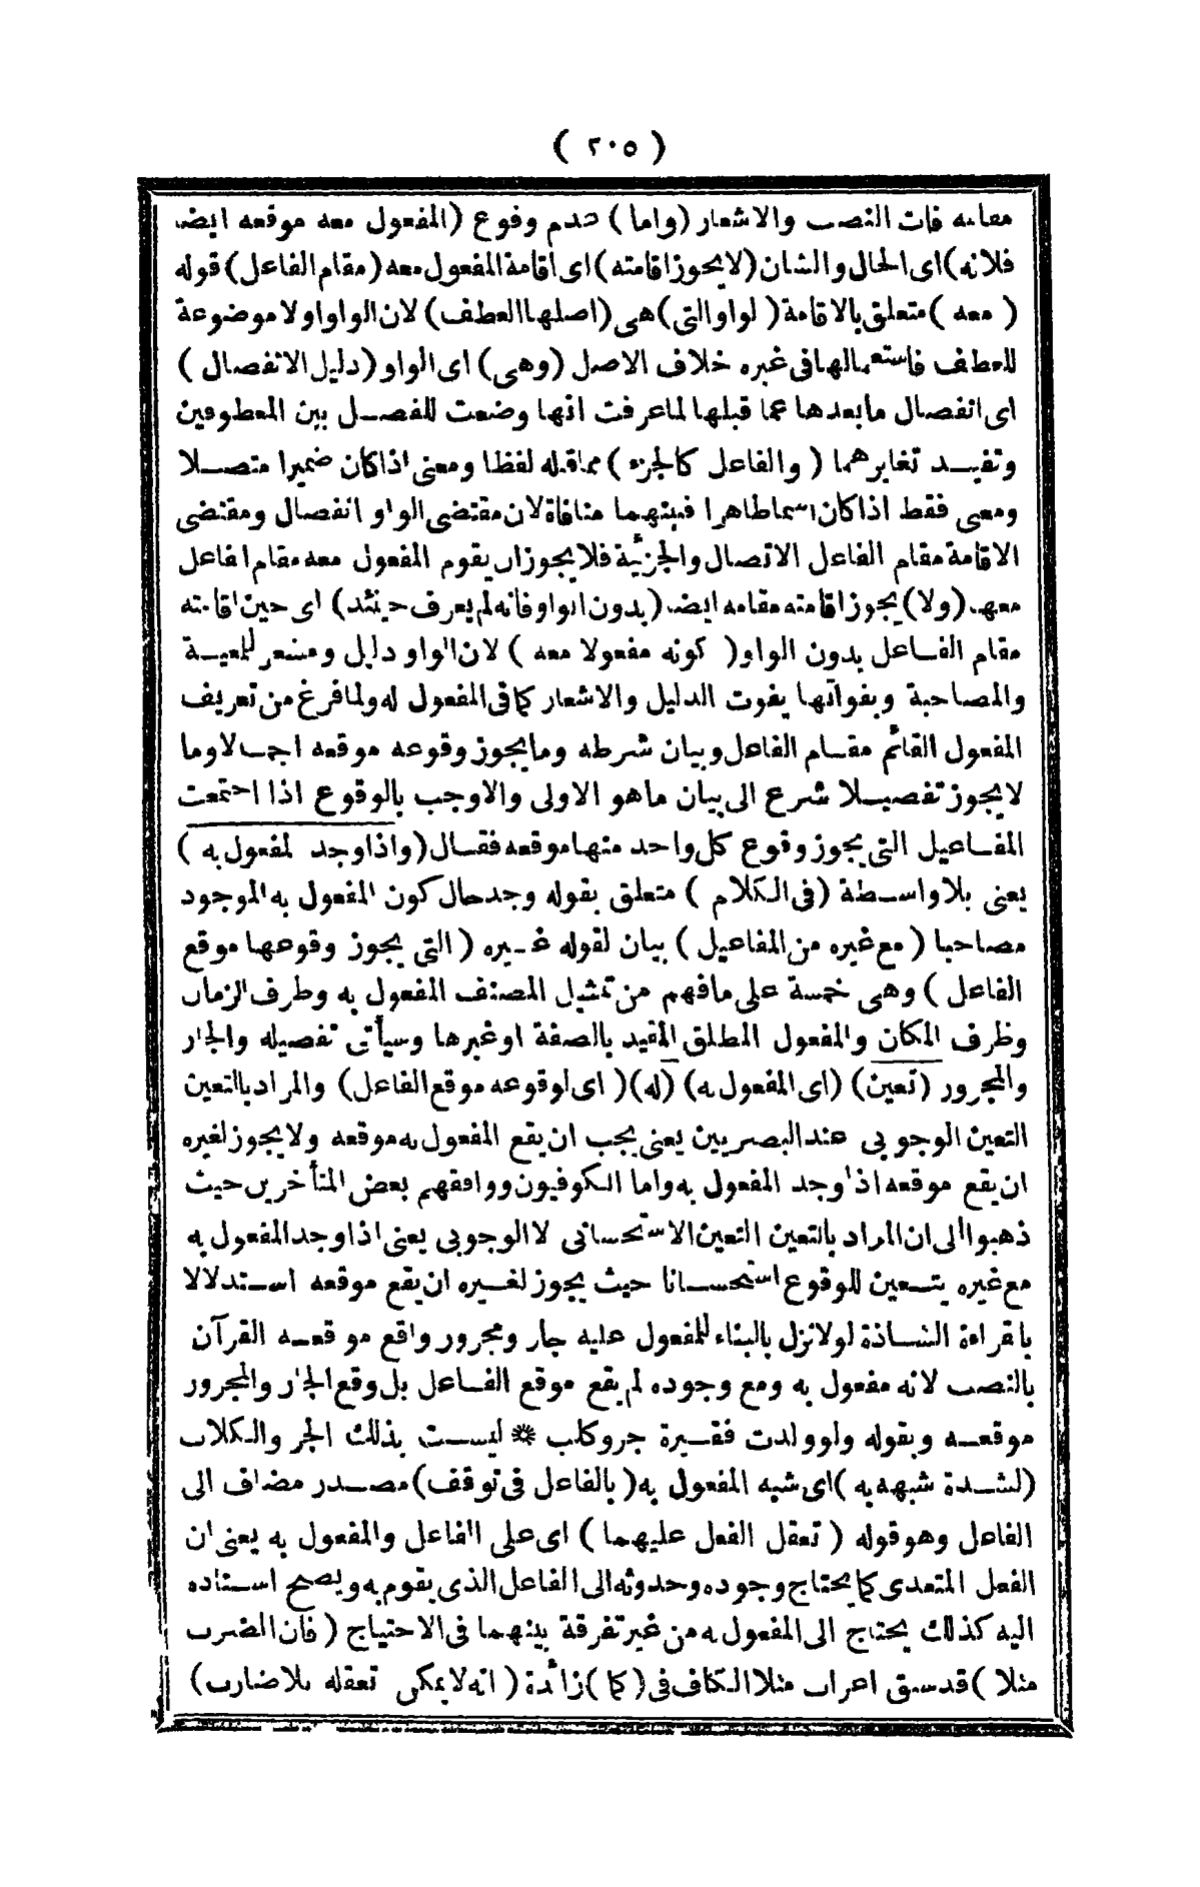 ( ٢٠٥ )
معامه فات النصب والاشعار (واما) عدم وقوع (المفعول معه موقعه ايضا
فلانه) اى الحال والشان (لايجوز اقامته) اى اقامة المفعول معه (مقام الفاعل) قوله
( معه ) متعلق بالاقامة ( لواو التى) هى (اصلها العطف) لان الواو اولا موضوعة
للعطف فاستعمالها فى غيره خلاف الاصل (وهى) اى الواو (دليل الانفصال )
اى انفصال مابعدها عما قبلها لماعرفت انها وضعت للفصل بين المعطوفين
وتفيد تغايرهما ( والفاعل كالجزء ) مماقبله لفظا ومعنى اذا كان ضميرا متصلا
ومعنى فقط اذا كان اسما ظاهرا فبينهما منافاة لان مقتضى الواو انفصال ومقتضى
الاقامة مقام الفاعل الاتصال والجزئية فلا يجوز ان يقوم المفعول معه مقام الفاعل
معها (ولا) يجوز اقامته مقامه ايضا (بدون الواو فانه لم يعرف حينئذ) اى حين اقامته
مقام الفاعل بدون الواو ( كونه مفعولا معه ) لان الواو دليل ومشعر للمعية
والمصاحبة وبفواتها يفوت الدليل والاشعار كما فى المفعول له ولما فرغ من تعريف
المفعول القائم مقام الفاعل وبيان شرطه ومايجوز وقوعه موقعه اجمالا وما
لايجوز تفصيلا شرع الى بيان ماهو الاولى والاوجب بالوقوع اذا اجتمعت
المفاعيل التى يجوز وقوع كل واحد منها موقعه فقال (واذا وجد المفعول به )
يعنى بلا واسطة (فى الكلام ) متعلق بقوله وجد حال كون المفعول به الموجود
مصاحبا ( مع غيره من المفاعيل ) بيان لقوله غيره ( التى يجوز وقوعها موقع
الفاعل ) وهى خمسة على مافهم من تمثيل المصنف المفعول به وظرف الزمان
وظرف المكان والمفعول المطلق المقيد بالصفة اوغيرها وسيأتى تفصيله والجار
والمجرور (تعين) (اى المفعول به) (له) ( اى لوقوعه موقع الفاعل) والمراد بالتعين
التعين الوجوبى عند البصريين يعنى يجب ان يقع المفعول به موقعه ولايجوز لغيره
ان يقع موقعه اذا وجد المفعول به واما الكوفيون ووافقهم بعض المتأخرين حيث
ذهبوا الى ان المراد بالتعين التعين الاستحسانى لاالوجوبى يعنى اذا وجد المفعول به
مع غيره يتعين للوقوع استحسانا حيث يجوز لغيره ان يقع موقعه استدلالا
باقراءة الشاذة لولانزل بالبناء للمفعول عليه جار ومجرور واقع موقعه القرآن
بالنصب لانه مفعول به ومع وجوده لم يقع موقع الفاعل بل وقع الجار والمجرور
موقعه وبقوله ولوولدت فقيرة جروكلب * ليست بذلك الجر والكلاب
(لشدة شبهه به ) اى شبه المفعول به ( بالفاعل فى توقف) مصدر مضاف الى
الفاعل وهو قوله ( تعقل الفعل عليهما ) اى على الفاعل والمفعول به يعنى ان
الفعل المتعدى كما يحتاج وجوده وحدوثه الى الفاعل الذى يقوم به ويصح اسناده
اليه كذلك يحتاج الى المفعول به من غير تفرقة بينهما فى الاحتياج ( فان الضرب
مثلا ) قد سبق اعراب مثلا الكاف فى ( كما ) زائدة ( انه لايمكن تعقله بلا ضارب)